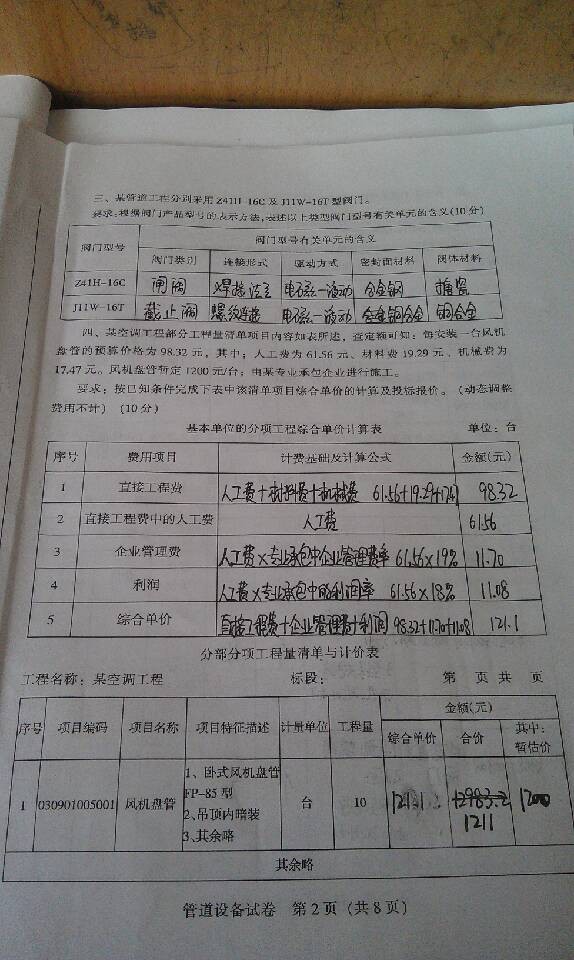 三、某管道工程分别采用 Z41H-16C 及 J11W-16T 型阀门。
要求:根据阀门产品型号的表示方法,表述以上类型阀门型号有关单元的含义(10 分)
阀门型号 阀门型号有关单元的含义
阀门类别 连接形式 驱动方式 密封面材料 阀体材料
Z41H-16C 闸阀 焊接法兰 电磁—液动 合金钢 搪瓷
J11W-16T 截止阀 螺纹连接 电磁—液动 合金钢合金 铜合金
四、某空调工程部分工程量清单项目内容如表所述,查定额可知:每安装一台风机
盘管的预算价格为 98.32 元,其中:人工费为 61.56 元、材料费 19.29 元、机械费为
17.47 元。风机盘管暂定 1200 元/台;由某专业承包企业进行施工。
要求:按已知条件完成下表中该清单项目综合单价的计算及投标报价。(动态调整
费用不计) (10 分)
基本单位的分项工程综合单价计算表 单位:台
序号 费用项目 计费基础及计算公式 金额(元)
1 直接工程费 人工费+材料费+机械费 61.56+19.29+17.47 98.32
2 直接工程费中的人工费 人工费 61.56
3 企业管理费 人工费×专业承包中企业管理费率 61.56×19% 11.70
4 利润 人工费×专业承包中的利润率 61.56×18% 11.08
5 综合单价 直接工程费+企业管理费+利润 98.32+11.70+11.08 121.1
分部分项工程量清单与计价表
工程名称:某空调工程 标段: 第 页 共 页
序号 项目编码 项目名称 项目特征描述 计量单位 工程量 金额(元)
综合单价 合价 其中:暂估价
1 030901005001 风机盘管 1、卧式风机盘管 FP-85 型 台 10 121.1 12983.2 1200
2、吊顶内暗装 1211
3、其余略
其余略
管道设备试卷 第 2 页 (共 8 页)